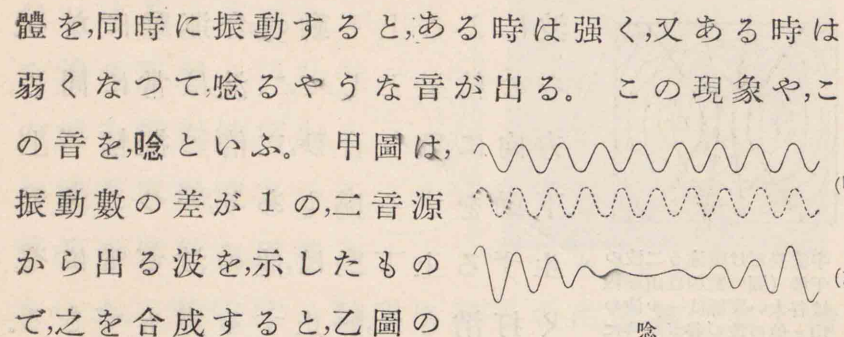 體を,同時に振動すると,ある時は强く,又ある時は
弱くなつて,唸るやうな音が出る。 この現象や,こ
の音を,唸といふ。 甲圖は,
振動數の差が1の,二音源
から出る波を,示したもの
で,之を合成すると,乙圖の
唸